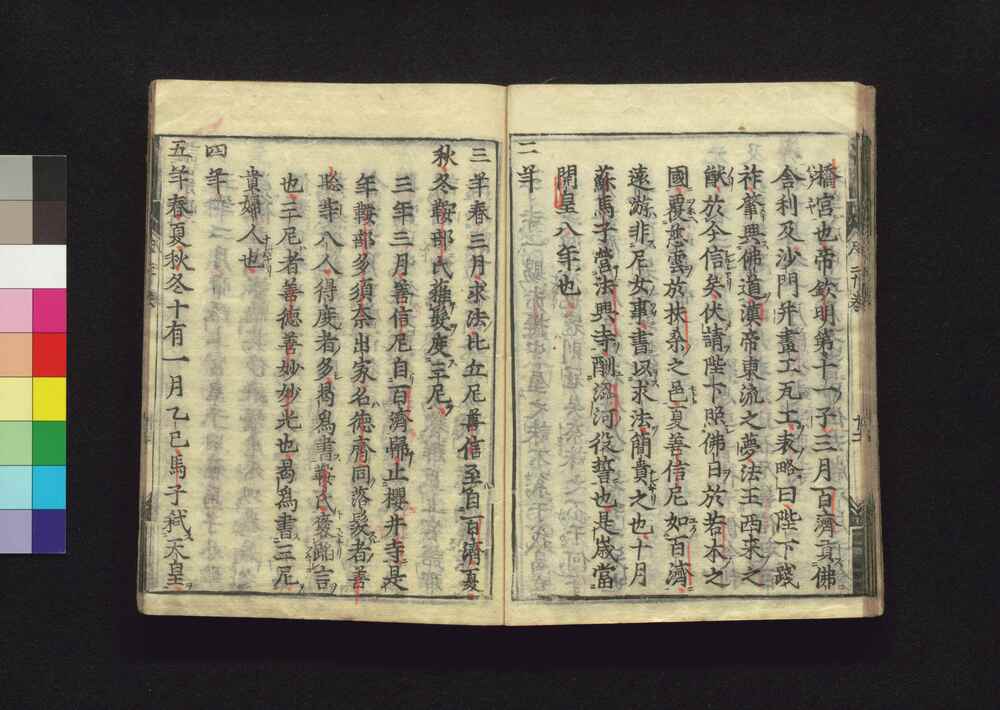 橋宮也帝欽明第十一子三月百濟貢佛
舍利及沙門并畫工瓦工表略曰陛下踐
祚肇興佛道漢帝東流之夢法王西來之
猷於今信矣伏請陛下照佛日於若木之
國覆慈雲於扶桑之邑夏善信尼如百濟
遠游非尼女事書以求法簡貴之也十月
蘇馬子營法興寺酬澁河役誓也是歲當
開皇八年也
二年
三年春三月求法比丘尼善信至自百濟夏
秋冬鞍部氏薙髮度三尼
三年三月善信尼自百濟歸止櫻井寺是
年鞍部多須奈出家名德齊同落髮者善
聰等八人得度者多曷爲書鞍氏褒
也三尼者善德善妙妙光也曷爲書三尼
貴婦人也
四年
五年春夏秋冬十有一月乙巳馬子弑天皇